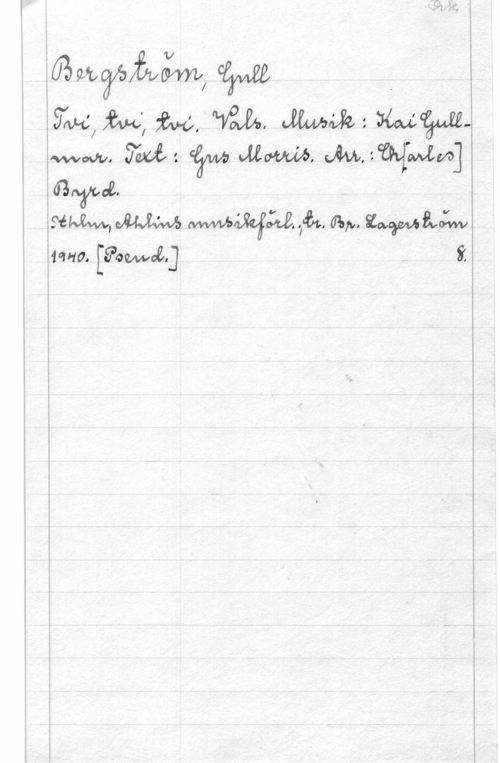 Ork
Bergström, Gull
Tvi, tvi, tvi. Vals. Musik : Kai Gull-
mar. Text : Gus Morris. Arr. : Ch[arles]
Byrd.
Sthlm, Ahlins musikförl.; tr. Br. Lagerström
1940. [Pseud.] 8.